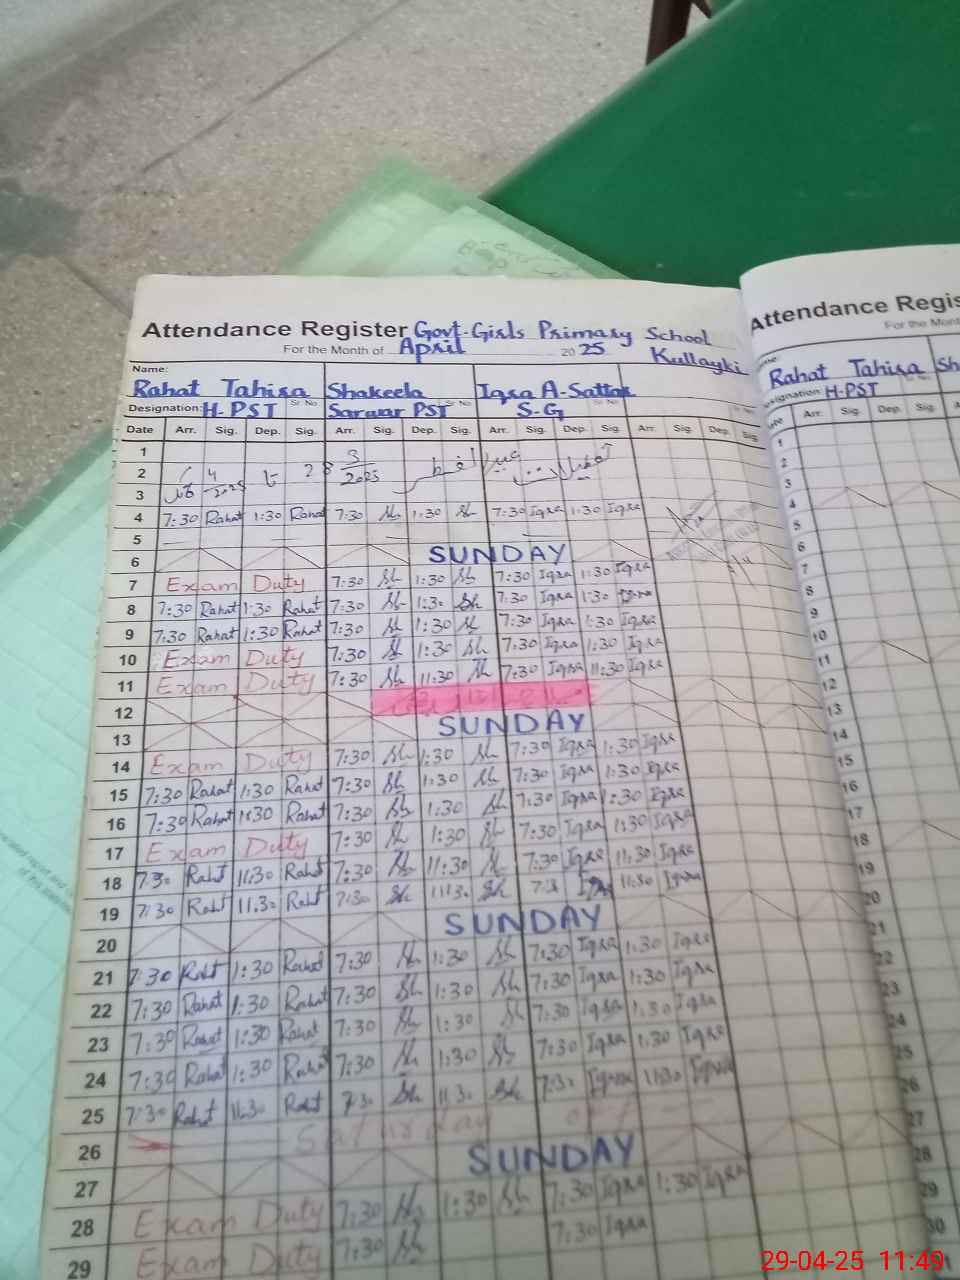 Attendance Register Govt-Girls Primary School
For the Month of April 2025 Kullayki
Name:
Rahat Tahira Shakeela Iqra A-Sattar
Designation: H-PST Sr No Sarwar PST Sr No S-G Sr No
Date Arr. Sig. Dep. Sig. Arr. Sig. Dep. Sig. Arr. Sig. Dep. Sig. Arr. Sig. Dep. Sig.
1
2
3
4 7:30 Rahat 1:30 Rahat 7:30 Sh 1:30 Sh 7:30 Iqra 1:30 Iqra
5
6 SUNDAY
7 Exam Duty 7:30 Sh 1:30 Sh 7:30 Iqra 1:30 Iqra
8 7:30 Rahat 1:30 Rahat 7:30 Sh 1:30 Sh 7:30 Iqra 1:30 Iqra
9 7:30 Rahat 1:30 Rahat 7:30 Sh 1:30 Sh 7:30 Iqra 1:30 Iqra
10 Exam Duty 7:30 Sh 1:30 Sh 7:30 Iqra 1:30 Iqra
11 Exam Duty 7:30 Sh 11:30 Sh 7:30 Iqra 11:30 Iqra
12
13 SUNDAY
14 Exam Duty 7:30 Sh 1:30 Sh 7:30 Iqra 1:30 Iqra
15 7:30 Rahat 1:30 Rahat 7:30 Sh 1:30 Sh 7:30 Iqra 1:30 Iqra
16 7:30 Rahat 1:30 Rahat 7:30 Sh 1:30 Sh 7:30 Iqra 1:30 Iqra
17 Exam Duty 7:30 Sh 1:30 Sh 7:30 Iqra 1:30 Iqra
18 7:30 Raht 11:30 Rahat 7:30 Sh 11:30 Sh 7:30 Iqra 11:30 Iqra
19 7:30 Raht 11:30 Raht 7:30 Sh 11:30 Sh Iqra 11:30 Iqra
20 SUNDAY
21 7:30 Raht 1:30 Rahat 7:30 Sh 1:30 Sh 7:30 Iqra 1:30 Iqra
22 7:30 Rahat 1:30 Rahat 7:30 Sh 1:30 Sh 7:30 Iqra 1:30 Iqra
23 7:30 Rahat 1:30 Rahat 7:30 Sh 1:30 Sh 7:30 Iqra 1:30 Iqra
24 7:30 Rahat 1:30 Rahat 7:30 Sh 1:30 Sh 7:30 Iqra 1:30 Iqra
25 7:30 Rahat 11:30 Raht 7:30 Sh 11:30 Sh 7:30 Iqra 11:30 Iqra
26 Saturday off
27 SUNDAY
28 Exam Duty 7:30 Sh 1:30 Sh 7:30 Iqra 1:30 Iqra
29 Exam Duty 7:30 Sh 7:30 Iqra
Attendance Regis
For the Mont
Rahat Tahira Sh
H-PST
Arr. Sig. Dep. Sig. A
1
2
3
4
5
6
7
8
9
10
11
12
13
14
15
16
17
18
19
20
21
22
23
24
25
26
27
28
29
30
29-04-25 11:49